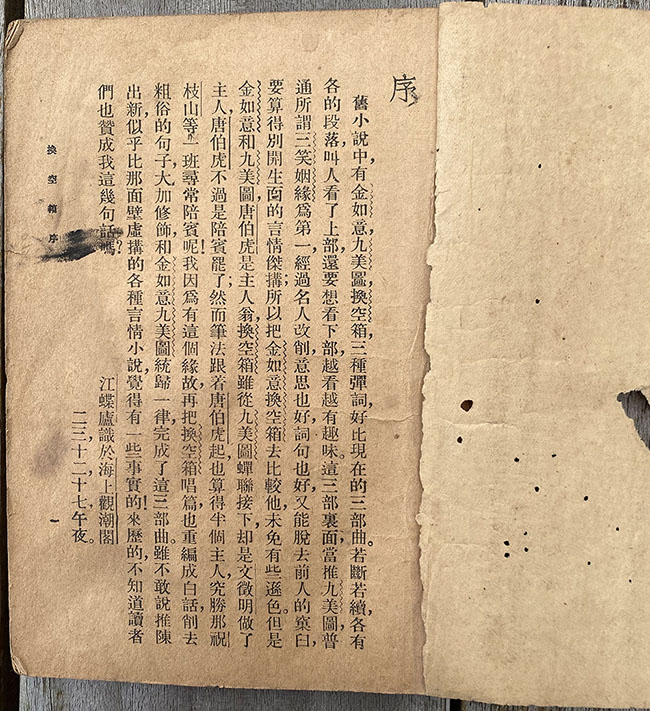 序
舊小說中有金如意，九美圖，換空箱，三種彈詞，好比現在的三部曲。若斷若續，各有
各的段落，叫人看了上部，還要想看下部，越看越有趣味。這三部裏面，當推九美圖，普
通所謂三笑姻緣爲第一，經過名人改削，意思也好，詞句也好，又能脫去前人的窠臼，
要算得別開生面的言情傑搆；所以把金如意換空箱去比較他，未免有些遜色。但是
金如意和九美圖，唐伯虎是主人翁，換空箱雖從九美圖蟬聯接下，却是文徵明做了
主人，唐伯虎不過是陪賓罷了；然而筆法跟着唐伯虎起，也算得半個主人，究勝那祝
枝山等，一班尋常陪賓呢！我因爲有這個緣故，再把換空箱唱篇，也重編成白話，削去
粗俗的句子，大加修飾，和金如意九美圖統歸一律，完成了這三部曲。雖不敢說推陳
出新，似乎比那面壁虛搆的各種言情小說，覺得有一些事實的來歷的！不知道讀者
們也贊成我這幾句話嗎？
江蝶廬識於海上觀潮閣
二三，十二，十七，午夜。
換空箱 序
一